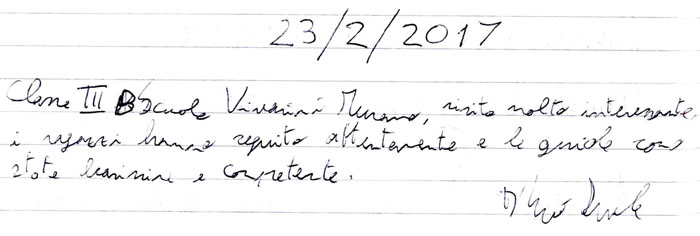 23/2/2017
Classe III B Scuola Vivarini Murano, visita molto interessante,
i ragazzi hanno seguito attentamente e le guide sono
state bravissime e competente.